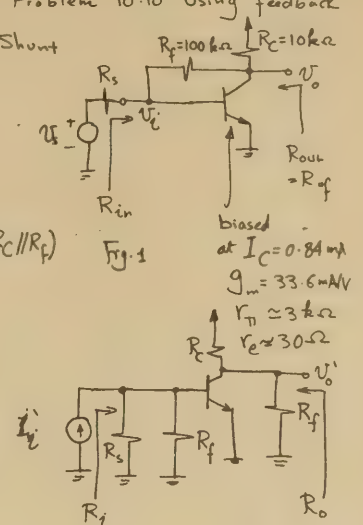 Problem 10.10 Using feedback
Shunt
R_f=100kΩ
R_C=10kΩ
R_s
v_o
v_i
v_s
+
-
R_out
= R_of
R_in
R_C//R_f)
Fig.1
biased
at I_C=0.84 mA
g_m = 33.6 mA/V
r_π ≃ 3 kΩ
r_e ≃ 30 Ω
R_C
v_o'
i_i'
R_s
R_f
R_f
R_i
R_o